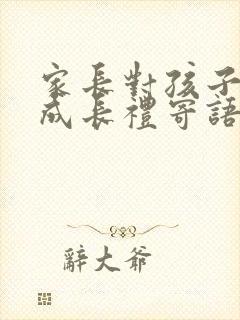 家長對孩子
成長禮寄語
辭大爺